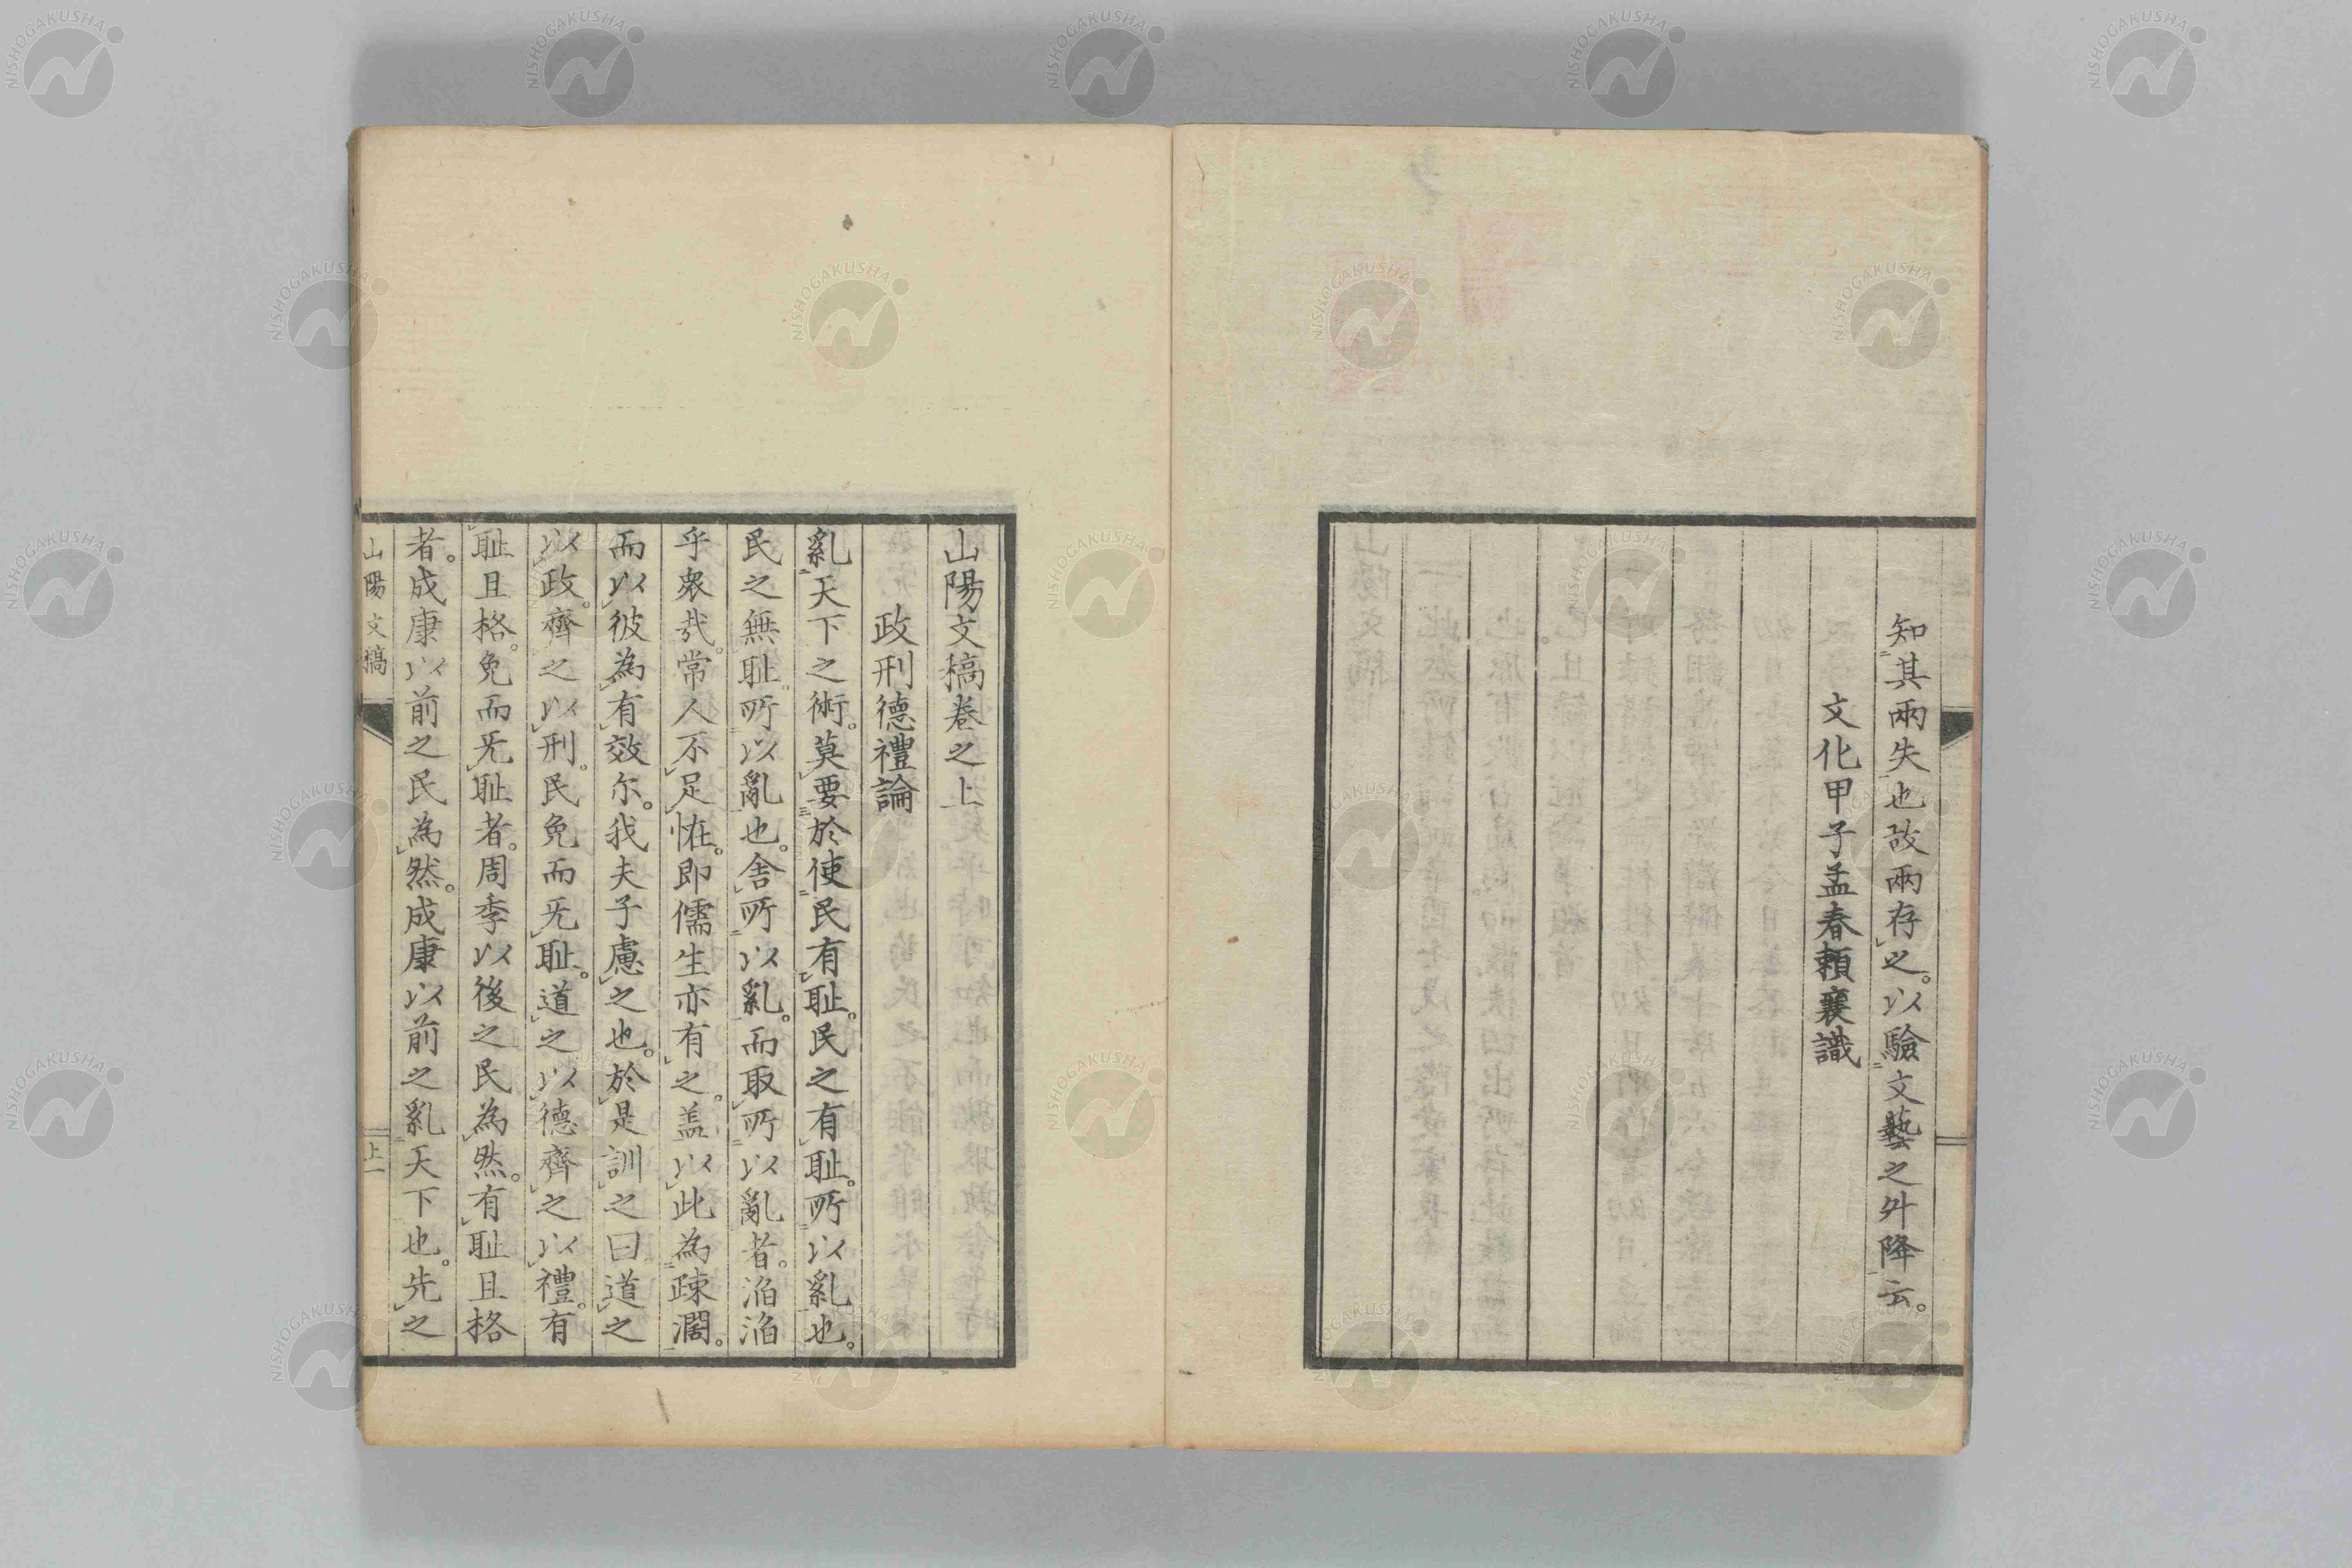 知其兩失也故兩存之。以驗文藝之外降云。
文化甲子孟春頼襄識
山陽文稿卷之上
政刑德禮論
亂天下之術。莫要於使民有耻。民之有耻。所以亂也。
民之無耻。所以亂也。舍所以亂。而取所以亂者。滔滔
乎衆哉。常人不足怪。即儒生亦有之。盖以此為疎濶。
而以彼為有效尔。我夫子慮之也。於是訓之曰。道之
以政。齊之以刑。民免而旡耻。道之以德。齊之以禮。有
耻且格。免而旡耻者。周季以後之民為然。有耻且格
者。成康以前之民為然。成康以前之亂天下也。先之
山陽文稿
上一
NISHOGAKUSHA